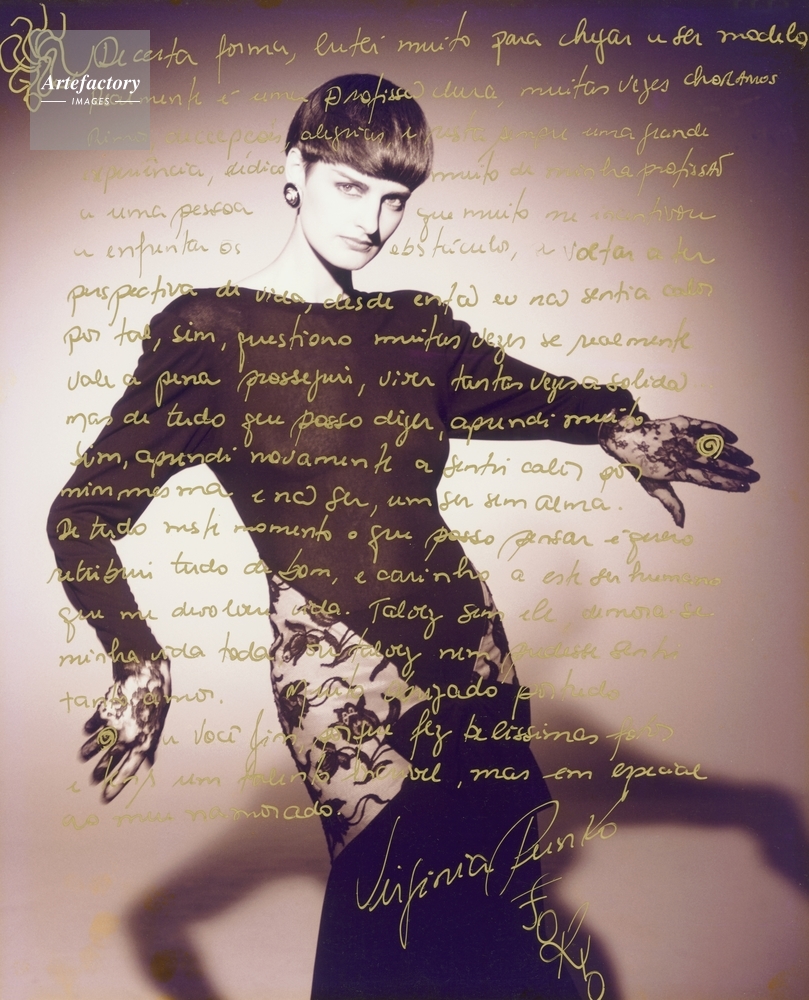 Artefactory
IMAGES
De certa forma, lutei muito para chegar a ser modelo
realmente é uma profissão dura, muitas vezes choramos
alegrias e sempre uma grande
experiência, dédico muito de minha profissão
a uma pessoa que muito me incentivou
a enfrentar os obstáculos, a voltar a ter
perspectiva de vida, desde então eu não sentia calor
por tal, sim, questiono muitas vezes se realmente
vale a pena prosseguir, viver tantas vezes a solidão
mas de tudo que posso dizer, aprendi muito
Sim, aprendi novamente a sentir calor por
mim mesma e não ser, um ser sem alma.
De tudo neste momento o que posso pensar é quero
retribuir tudo de bom, e carinho a este ser humano
que me devolveu vida. Talvez sem ele, demora-se
minha vida toda, ou talvez nem pudesse sentir
tanto amor. Muito obrigado por tudo
a você porque fez belíssimas fotos
e um talento incrível, mas em especial
ao meu namorado.
Virginia Punko